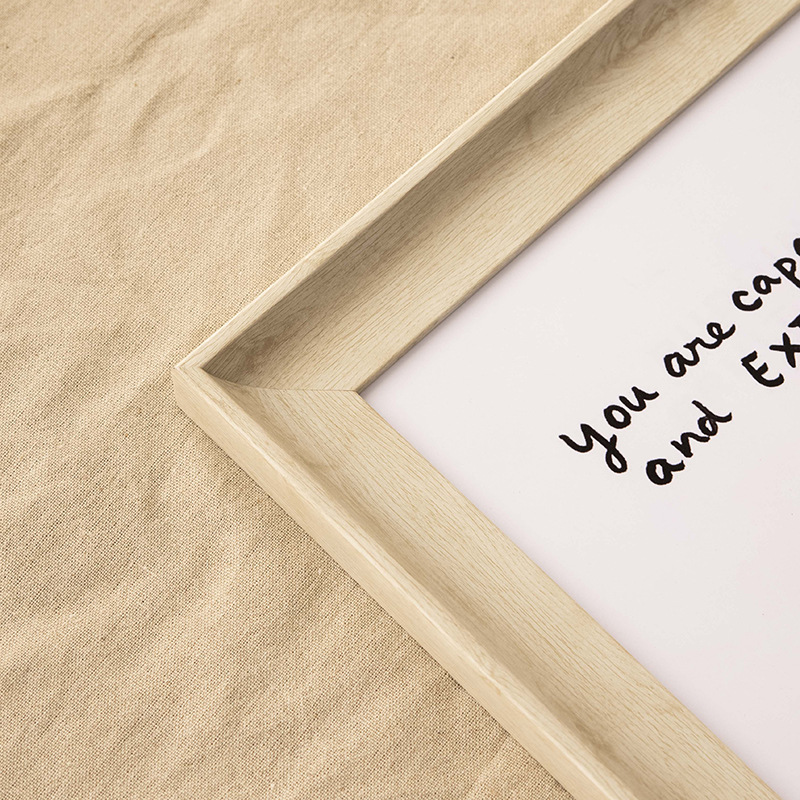 You are cap
and Ex